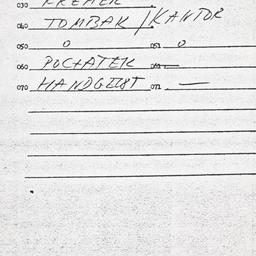 030 KREMER
040 TOMBAK / KANTOR
050 0 051 0
060 POCZATEK 061 —
070 HANDGELT 071 —